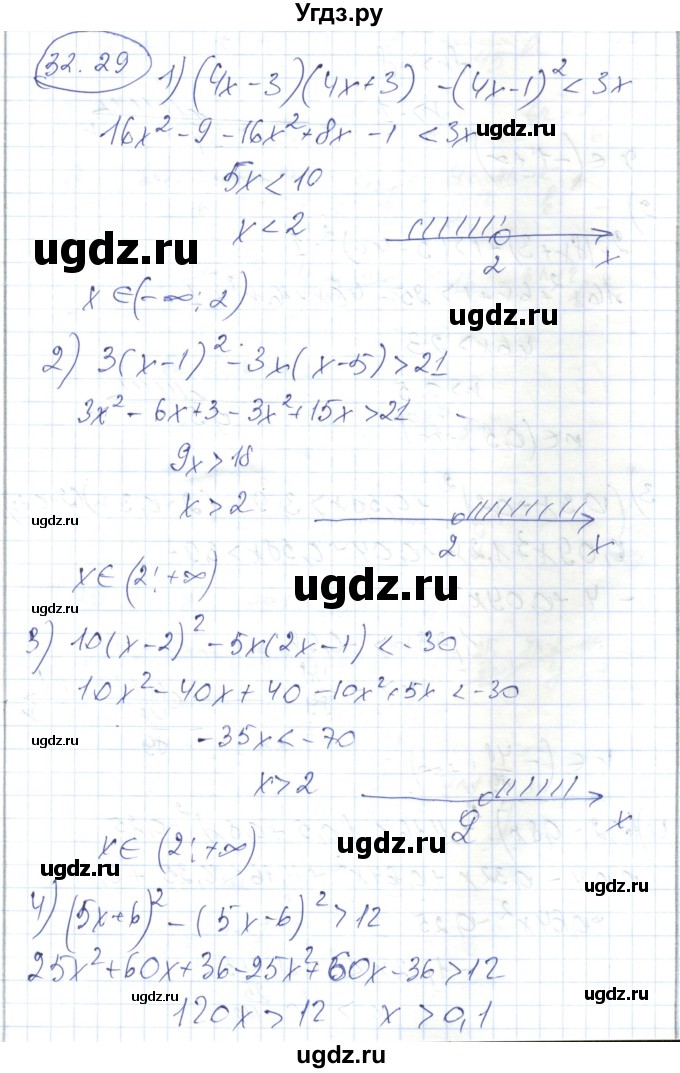 Угдз.ру
32.29 1) (4x-3)(4x+3) -(4x-1)² < 3x
16x² - 9 - 16x² + 8x - 1 < 3x
ugdz.ru
5x < 10
x < 2
2 x
ugdz.ru
x ∈ (-∞; 2)
ugdz.ru
2) 3(x-1)² - 3x(x-5) > 21
3x² - 6x + 3 - 3x² + 15x > 21
9x > 18
x > 2
ugdz.ru
2 x
x ∈ (2; +∞)
ugdz.ru
ugdz.ru
3) 10(x-2)² - 5x(2x-1) < -30
10x² - 40x + 40 - 10x² + 5x < -30
-35x < -70
ugdz.ru
x > 2
2 x
x ∈ (2; +∞)
ugdz.ru
ugdz.ru
4) (5x+6)² - (5x-6)² > 12
ugdz.ru
25x² + 60x + 36 - 25x² + 60x - 36 > 12
ugdz.ru
ugdz.ru
120x > 12 x > 0,1
ugdz.ru